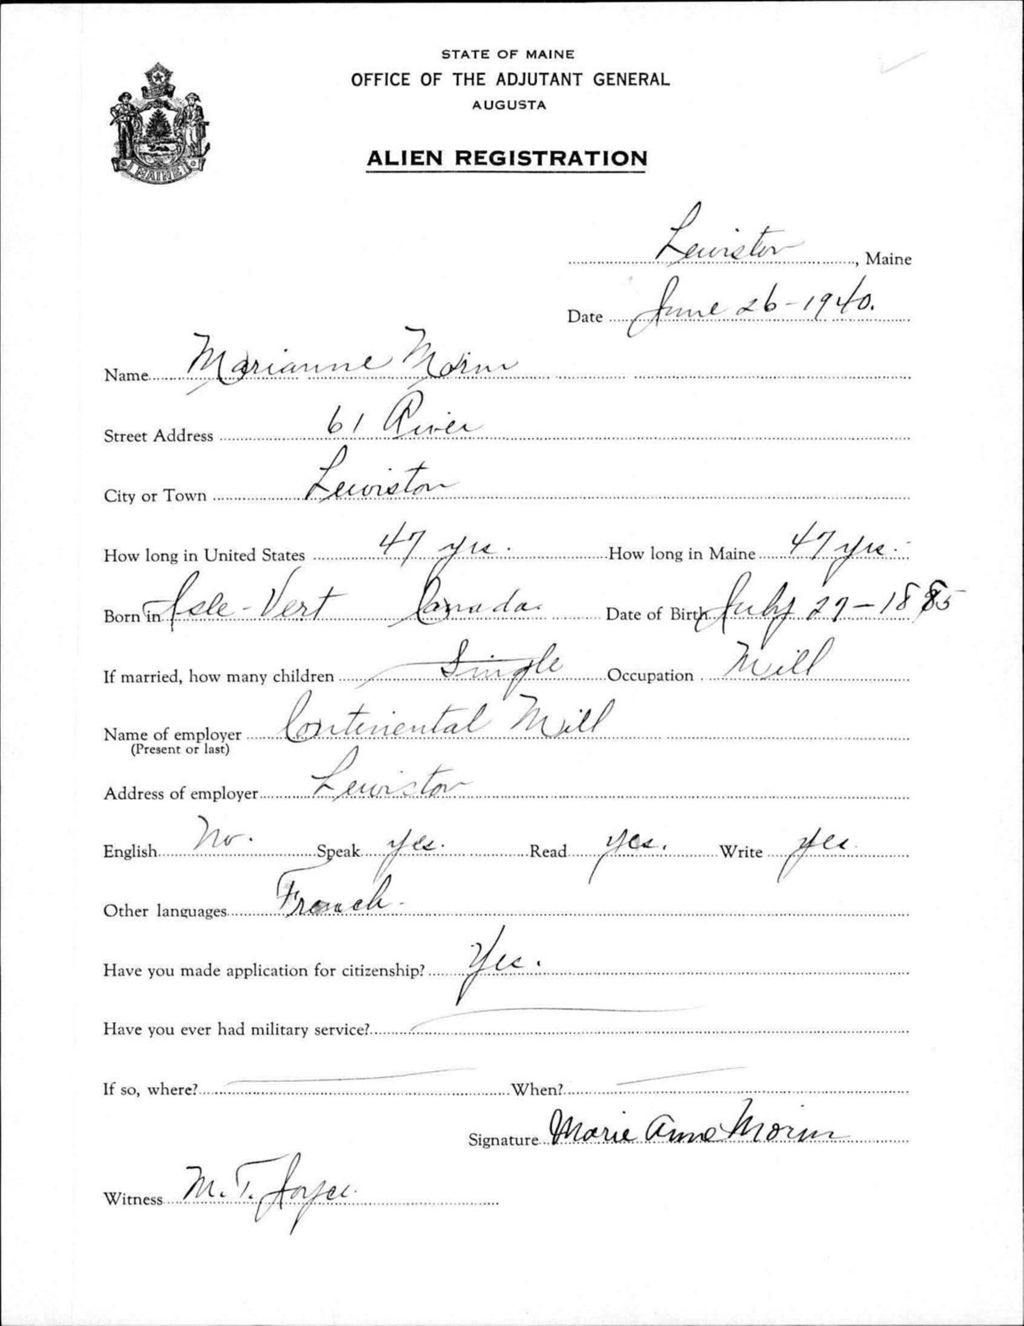 STATE OF MAINE
OFFICE OF THE ADJUTANT GENERAL
AUGUSTA
ALIEN REGISTRATION
MAINE
Lewiston, Maine
Date June 26-1940.
Name Marianne Morin
Street Address 61 River
City or Town Lewiston
How long in United States 47 yrs. How long in Maine 47 yrs.
Born in Isle-Vert Canada. Date of Birth July 27-1885
If married, how many children Single Occupation Mill
Name of employer Continental Mill
(Present or last)
Address of employer Lewiston
English No. Speak yes. Read yes. Write yes
Other languages French.
Have you made application for citizenship? Yes.
Have you ever had military service?
If so, where? When?
Signature Marie Anne Morin
Witness M. T. Joyce.